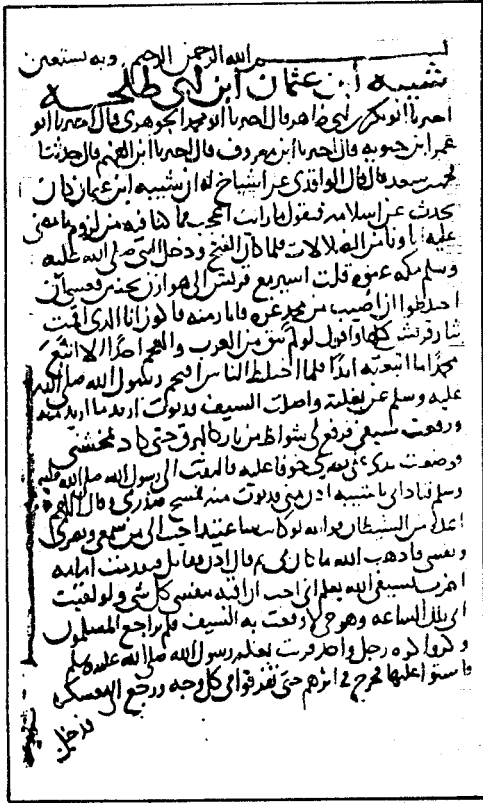 بسم الله الرحمن الرحيم وبه نستعين
شيبه ابن عثمان ابن ابي طلحه
اخبرنا ابو بكر بن ابي طاهر قال اخبرنا ابو محمد الجوهري قال اخبرنا ابو
عمر ابن حيويه قال اخبرنا ابن معروف قال اخبرنا ابن الفهم قال حدثنا
محمد بن سعد قال قال الواقدي عن اشياخ له ان شيبه ابن عثمان كان
يحدث عن اسلامه فيقول ما رايت اعجب مما كنا فيه من لزوم ما مضى
عليه اباونا من الضلالات فلما كان الفتح ودخل النبي صلى الله عليه
وسلم مكه عنوه قلت اسير مع قريش الى هوازن بحنين فعسى ان
اختلطوا ان اصيب من محمد غره فاثار منه فاكون انا الذي قمت
بثار قريش كلها واقول لو لم يبق من العرب والعجم احدا الا اتبع
محمدا ما اتبعته ابدا فلما اختلط الناس اقتحم رسول الله صلى الله
عليه وسلم عن بغلته واصلت السيف فدنوت اريد ما اريد منه
ورفعت سيفي فرفع لي شواظ من نار كالبرق حتى كاد يمحشني
فوضعت يدي على بصري خوفا عليه فالتفت الي رسول الله صلى الله عليه
وسلم فنادى لي يا شيبه ادن مني فدنوت منه فمسح صدري وقال اللهم
اعذه من الشيطان فوالله لهو كان ساعتئذ احب الي من سمعي وبصري
ونفسي فاذهب الله ما كان بي ثم قال ادن فقاتل فتقدمت امامه
اضرب بسيفي الله يعلم اني احب ان اقيه بنفسي كل شي ولو لقيت
ابي تلك الساعه وهو حي لاوقعت به السيف فلم تراجع المسلمون
وكروا كره رجل واحد قربت بغله رسول الله صلى الله عليه وسلم
فاستوا عليها فخرج في اثرهم حتى تفرقوا في كل وجه ورجع الى معسكره
فدخل